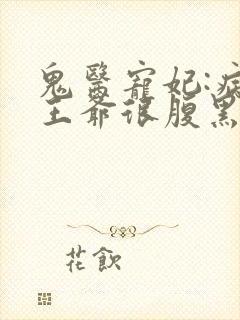 鬼醫寵妃:病
王爺很腹黑
花飲